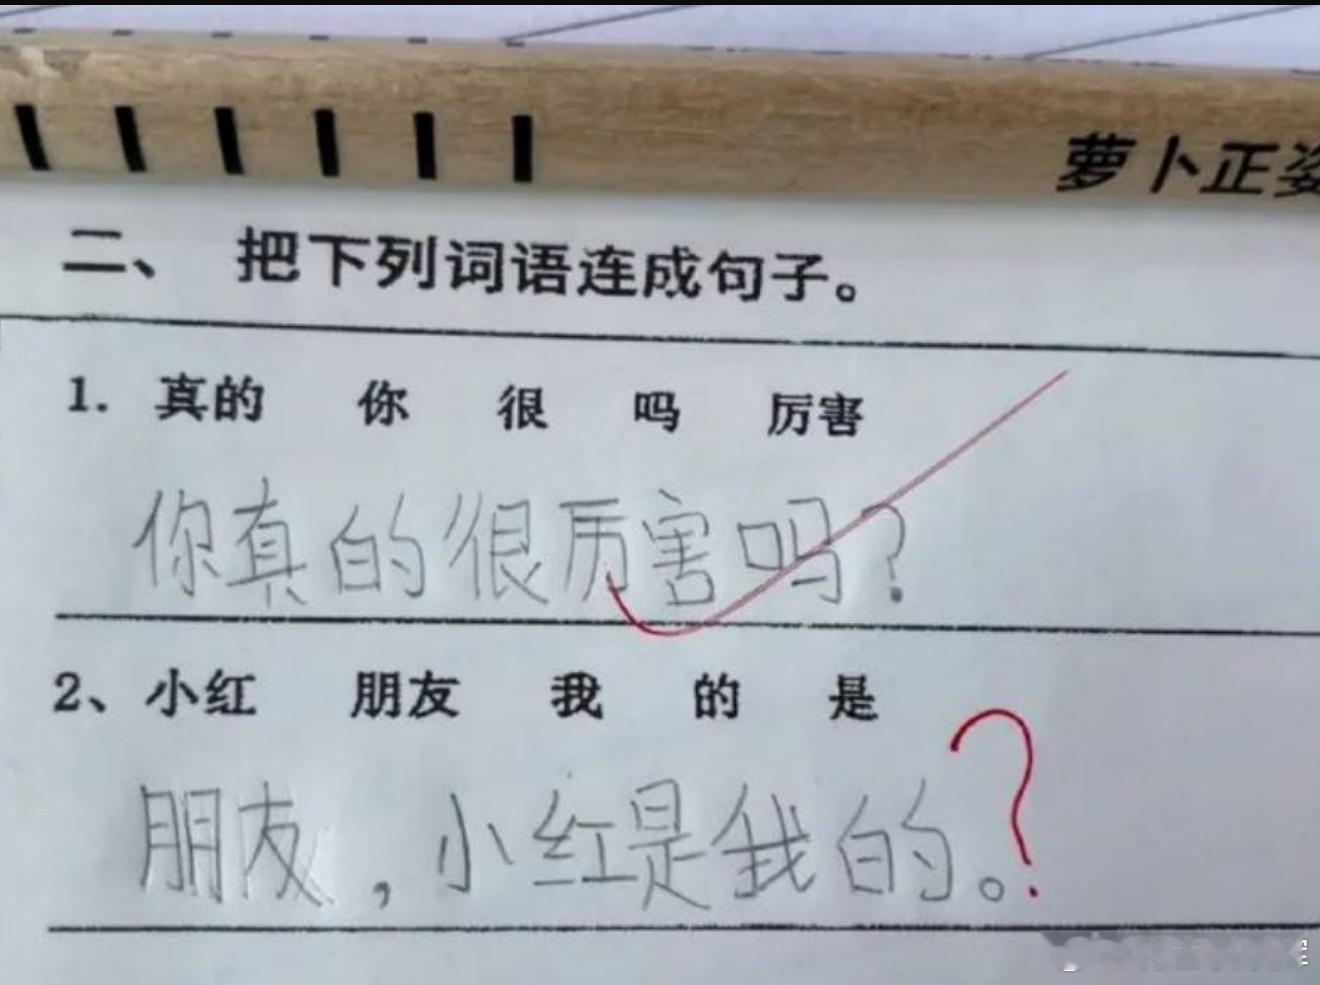 萝卜正姿
二、 把下列词语连成句子。
1. 真的 你 很 吗 厉害
你真的很厉害吗?
2、小红 朋友 我 的 是
朋友,小红是我的。
?